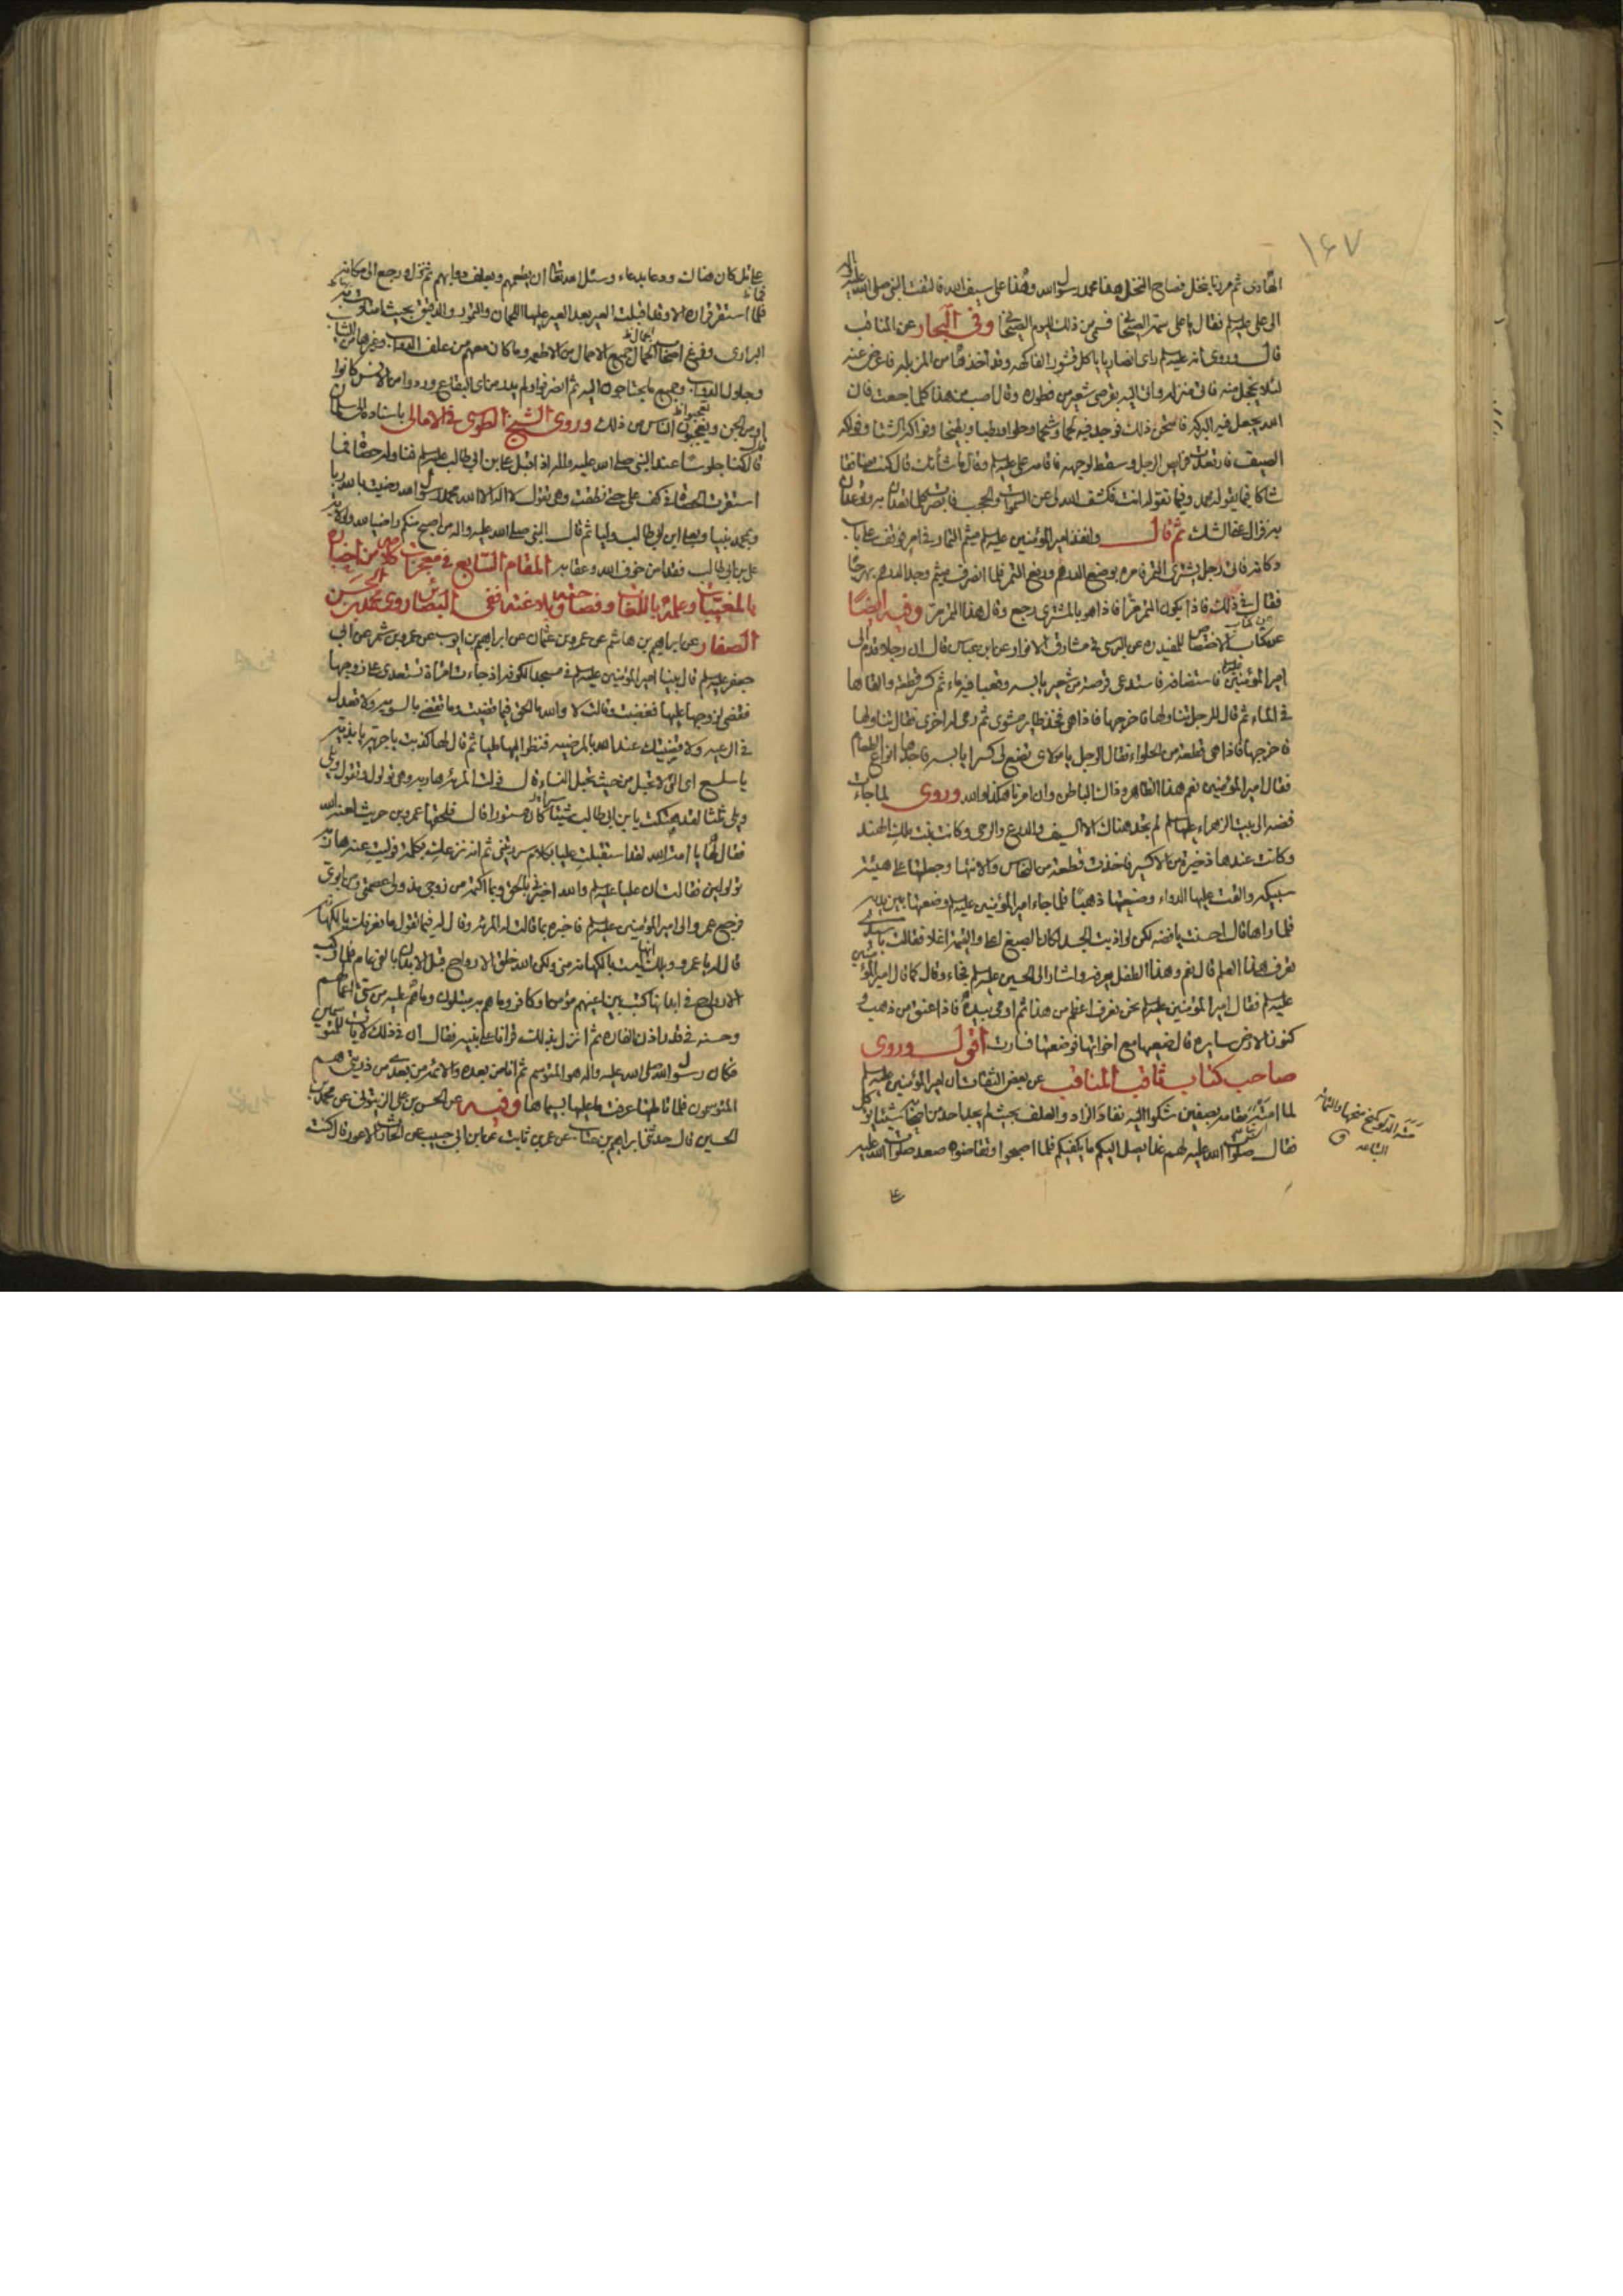 ١٦٧
الهادی ثم مررنا بنخل فصاح النخل هذا محمد رسول الله وهذا علی سیف الله فالتفت النبی صلی الله علیه واله
الی علی علیه السلم فقال یا علی سمه الصیحانی فسمی من ذلك الیوم الصیحانی وفی البحار عن المناقب
قال وروی انه علیه السلم رای انصاریا یاکل قشور الفاکهة وقد اخذها من المزبلة فاعرض عنه
لئلا یخجل منه فاتی منزله واتی الیه بقرصی شعیر من فطوره وقال اصب من هذا کلما جعت فان
الله یجعل فیه البرکة فامتحن ذلك فوجد فیه لحما وشحما وحلوا ورطبا وبطیخا وفواکه الشتا وفواکه
الصیف فارتعدت فرایص الرجل وسقط لوجهه فاقامه علی علیه السلم وقال ما شأنك قال کنت منافقا
شاکا فیما یقوله محمد وفیما تقوله انت فکشف الله لی عن السموات والحجب فابصرت کلما تعدان به وتواعدان
به فزال عنی الشك ثم قال وانفذ امیر المؤمنین علیه السلم میثم التمار فی امر فوقف علی باب
دکانه فاتی رجل یشتری التمر فامره بوضع الدرهم ورفع التمر فلما انصرف میثم وجد الدرهم بهرجا
فقال فی ذلك فاذا یکون التمر مرا فاذا هو بالمشتری رجع وقال هذا التمر مر وفیه ایضا
عن کتاب الاختصاص للمفید ره عن البرسی فی مشارق الانوار عن ابن عباس قال ان رجلا قدم الی
امیر المؤمنین فاستضافه فاستدعی قرصة من شعیر یابسة وقعبا فیه ماء ثم کسر قطعة والقاها
فی الماء ثم قال للرجل تناولها فاخرجها فاذا هی فخذ طایر مشوی ثم رمی له اخری فقال تناولها
فاخرجها فاذا هی قطعة من الحلواء فقال الرجل یا مولای تضع لی کسرا یابسة فاجدها انواع الطعام
فقال امیر المؤمنین نعم هذا الظاهر وذاك الباطن وان امرنا هکذا والله وروی لما جاءت
فضة الی بیت الزهراء علیها السلم لم تجد هناك الا السیف والدرع والرحی وکانت بنت ملك الهند
وکانت عندها ذخیرة من الاکسیر فاخذت قطعة من النحاس والانتها وجعلتها علی هیئة
سبیکة والقت علیها الدواء وصنعتها ذهبا فلما جاء امیر المؤمنین علیه السلم وضعتها بین یدیه
فلما راها قال احسنت یا فضة لکن لو اذبت الجسد لکان الصبغ اعلا والقیمة اغلا فقالت یا سیدی
تعرف هذا العلم قال نعم وهذا الطفل یعرفه واشار الی الحسین علیه السلم فجاء وقال کما قال امیر المؤمنین
علیه السلم فقال امیر المؤمنین علیه السلم نحن نعرف اعظم من هذا ثم اومی بیده فاذا عنق من ذهب و
کنوز الارض سایرة قال ضعیها مع اخواتها فوضعتها فسارت اقول وروی
صاحب کتاب ثاقب المناقب عن بعض الثقات ان امیر المؤمنین علیه السلم
لما امتد مقامه بصفین شکوا الیه نفاد الزاد والعلف بحیث لم یجد احد من اصحابه شیئا یؤکل
فقال صلوات الله علیه لهم غدا یصل الیکم ما یکفیکم فلما اصبحوا وتقاضوه صعد صلوات الله علیه
علی
علی تل کان هناك ودعا بدعاء وسئل الله تعا ان یطعمهم ویعلف دوابهم ثم نزل ورجع الی مکانه
فلما استقر قراره الا وقد اقبلت العیر بعد العیر علیها اللحمان والتمور والدقیق بحیث امتلات به
البراری وفرغ اصحاب الجمال جمیع الاحمال من الاطعمة وما کان معهم من علف الدواب وغیرها من الثیاب
وجلال الدواب وجمیع ما یحتاجون الیه ثم انصرفوا ولم یدر من ای البقاع وردوا من الانس کانوا
او من الجن وتعجب الناس من ذلك وروی الشیخ الطوسی فی الامالی باسناده عن سلمان
قال کنا جلوسا عند النبی صلی الله علیه واله اذ اقبل علی بن ابی طالب علیه السلم فناوله حصاة فما
استقرت الحصاة فی کف علی حتی نطقت وهی تقول لا اله الا الله محمد رسول الله رضیت بالله ربا
وبمحمد نبیا وبعلی ابن ابی طالب ولیا ثم قال النبی صلی الله علیه واله من اصبح منکم راضیا بالله وبولایة
علی بن ابی طالب فقد امن خوف الله وعقابه المقام السابع فی معجزات کلامه من اخباره
بالمغیبات وعلمه باللغات وفصاحته وبلاغته ففی البصائر روی محمد بن الحسن
الصفار عن ابراهیم بن هاشم عن عمرو بن عثمان عن ابراهیم بن ایوب عن عمرو بن شمر عن ابی
جعفر علیه السلم قال بینا امیر المؤمنین علیه السلم فی مسجد الکوفة اذ جاءت امراة تستعدی علی زوجها
فقضی لزوجها علیها فغضبت وقالت لا والله ما الحق فیما قضیت وما تقضی بالسویة ولا تعدل
فی الرعیة ولا قضیتك عند الله بالمرضیة فنظر الیها ملیا ثم قال لها کذبت یا جریة یا بذیة
یا سلسع ای التی لا تحبل من حیث تحبل النساء قال فولت المرئة هاربة وهی تولول وتقول ویلی
ویلی ثلثا لقد هتکت یابن ابی طالب سترا کان مستورا قال فلحقها عمرو بن حریث لعنه الله
فقال لها یا امة الله لقد استقبلت علیا بکلام سررتنی ثم انه نزع لك بکلمة فولیت عنه هاربة
تولولین فقالت ان علیا علیه السلم والله اخبرنی بالحق وبما اکتمه من زوجی منذ ولی عصمتی ومن ابوی
فرجع عمرو الی امیر المؤمنین علیه السلم فاخبره بما قالت له المرئة وقال له فیما تقول ما نعرفك بالکهانة
قال له یا عمرو ویلك انها لیست بالکهانة منی ولکن الله خلق الارواح قبل الابدان بالفی عام فلما رکب
الارواح فی ابدانها کتب بین اعینهم مؤمن او کافر وما هم به مبتلون وما هم علیه من سیئ اعمالهم
وحسنه فی قدر اذن الفارة ثم انزل بذلك قرانا علی نبیه فقال ان فی ذلك لایات للمتوسمین
فکان رسول الله صلی الله علیه واله هو المتوسم ثم انا من بعده والائمة من بعدی من ذریتی هم
المتوسمون فلما تاملتها عرفت ما علیها بسیماها وفیه عن الحسن بن علی الزیتونی عن محمد بن
الحسین قال حدثنی ابراهیم بن غیاث عن عمرو بن ثابت عن ابن ابی حبیب عن الحارث الاعور قال کنت